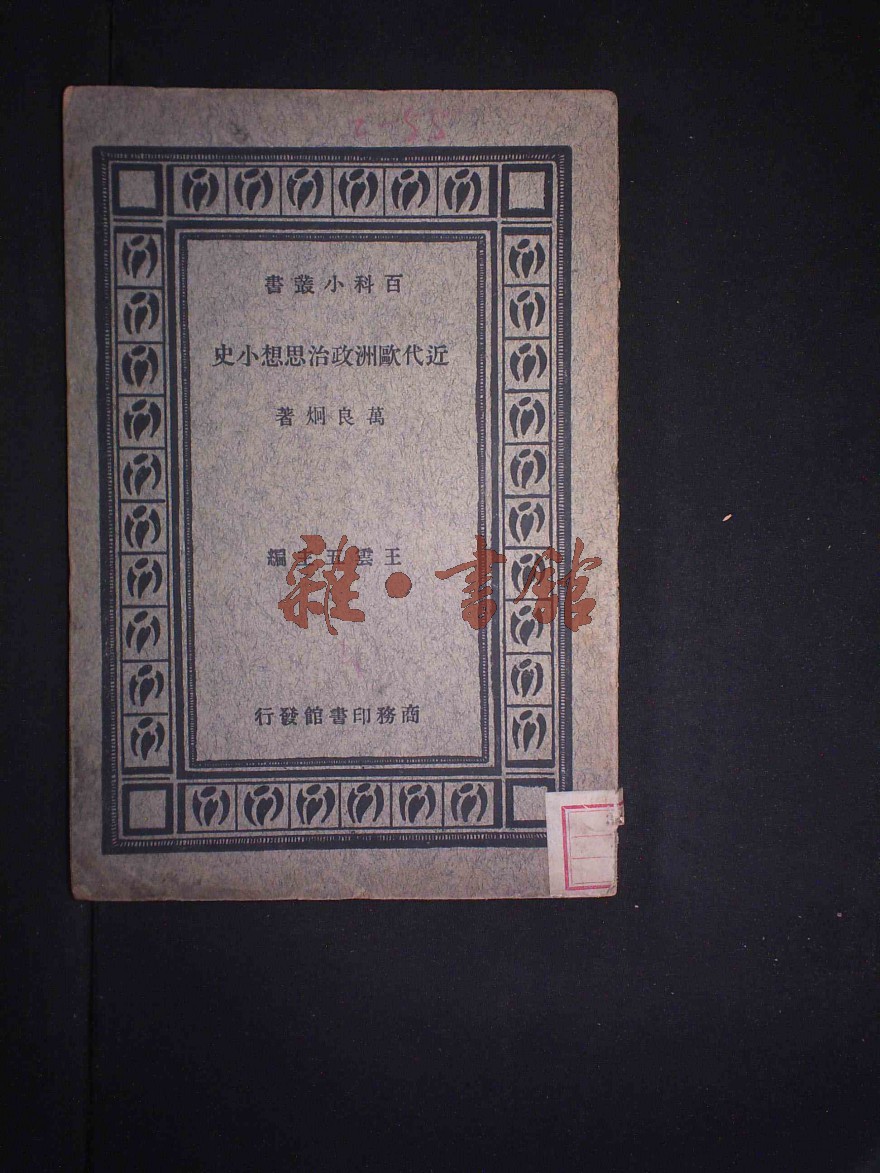 百科小叢書
近代歐洲政治思想小史
萬良炯著
王雲五主編
雜·書館
商務印書館發行